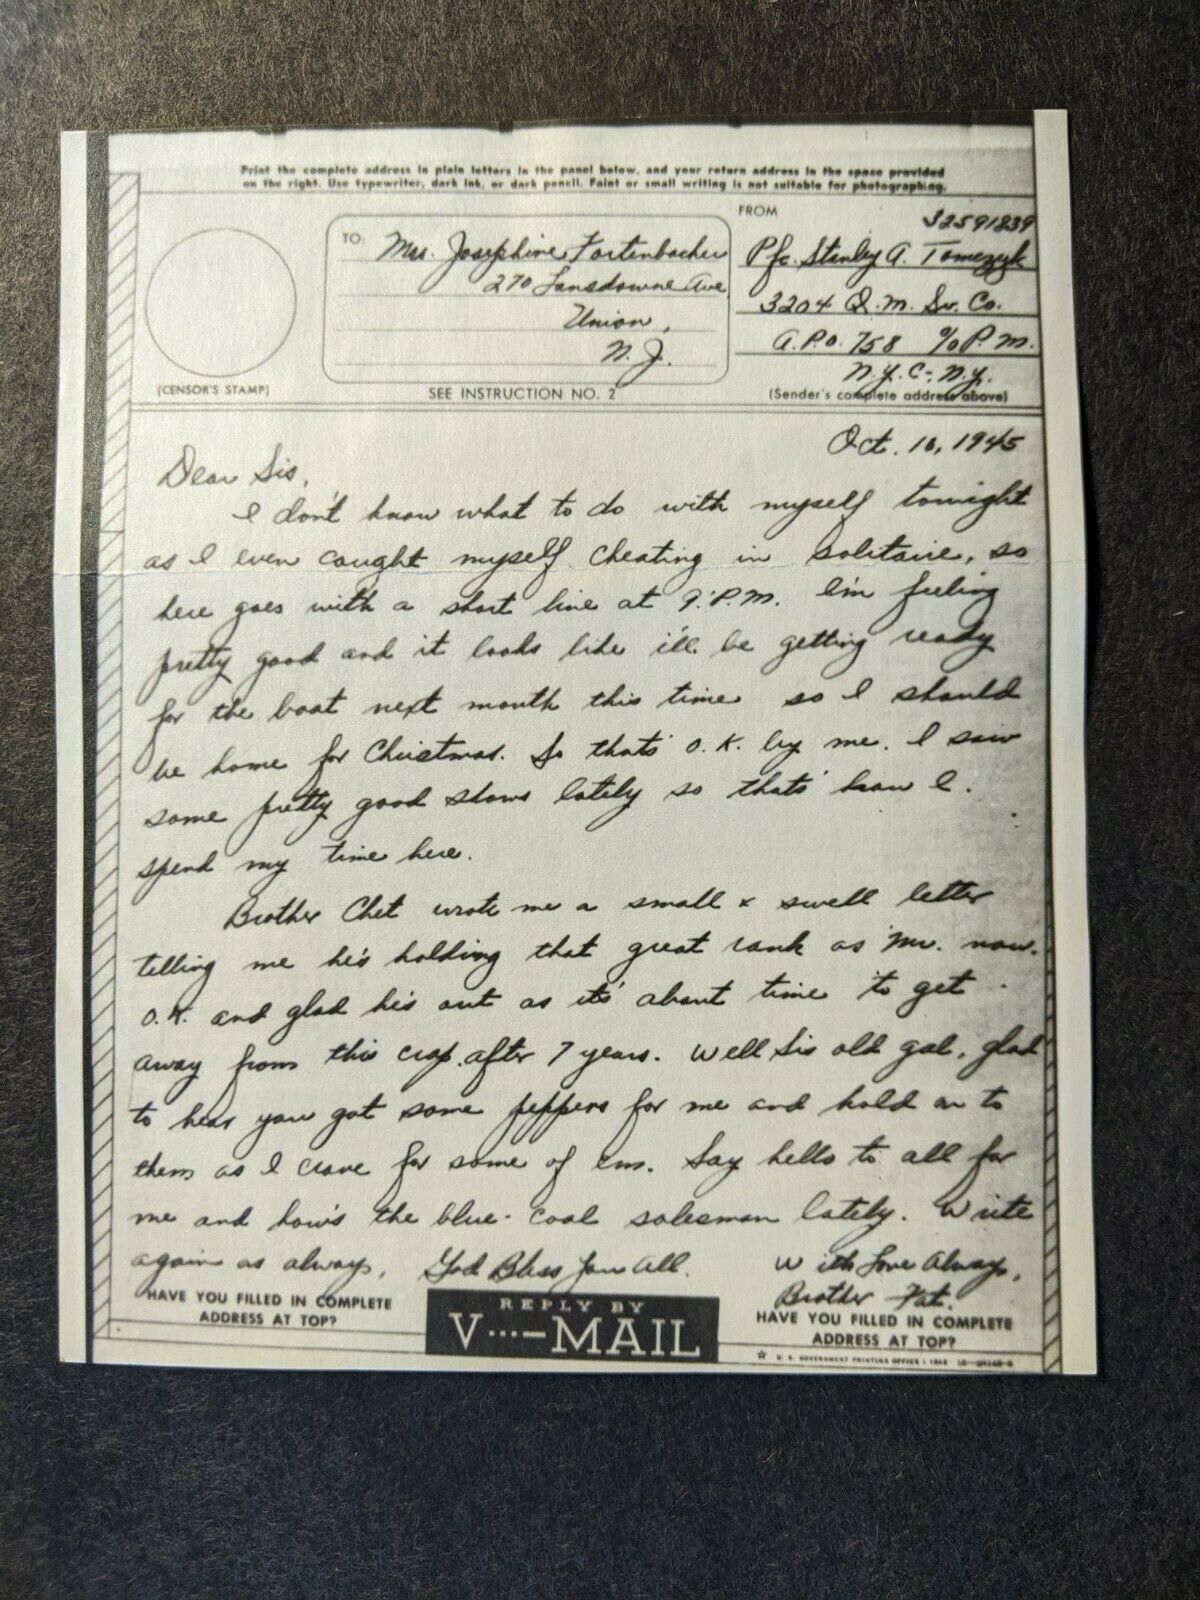 Print the complete address in plain letters in the panel below, and your return address in the space provided
on the right. Use typewriter, dark ink, or dark pencil. Faint or small writing is not suitable for photographing.
FROM
32591839
TO:
Mrs. Josephine Fortenbacher
270 Lansdowne Ave
Union,
N. J.
Pfc. Stanley A. Tomczyk
3204 Q.M. Sv. Co.
A.P.O. 758 %P.M.
N.Y.C., N.Y.
(CENSOR'S STAMP)
SEE INSTRUCTION NO. 2
(Sender's complete address above)
Oct. 10, 1945
Dear Sis,
I don't know what to do with myself tonight
as I even caught myself cheating in solitaire, so
here goes with a short line at 9 P.M. I'm feeling
pretty good and it looks like i'll be getting ready
for the boat next month this time so I should
be home for Christmas. So thats' O.K. by me. I saw
some pretty good shows lately so thats' how I
spend my time here.
Brother Chet wrote me a small & swell letter
telling me he's holding that great rank as Mr. now.
O.K. and glad he's out as its' about time to get
away from this crap after 7 years. Well Sis old gal, glad
to hear you got some peppers for me and hold on to
them as I crave for some of em. Say hello to all for
me and how's the blue-coal salesman lately. Write
again as always, God Bless You All.
With Love Always,
Brother
HAVE YOU FILLED IN COMPLETE
ADDRESS AT TOP?
REPLY BY
V···—MAIL
HAVE YOU FILLED IN COMPLETE
ADDRESS AT TOP?
☆ U. S. GOVERNMENT PRINTING OFFICE :